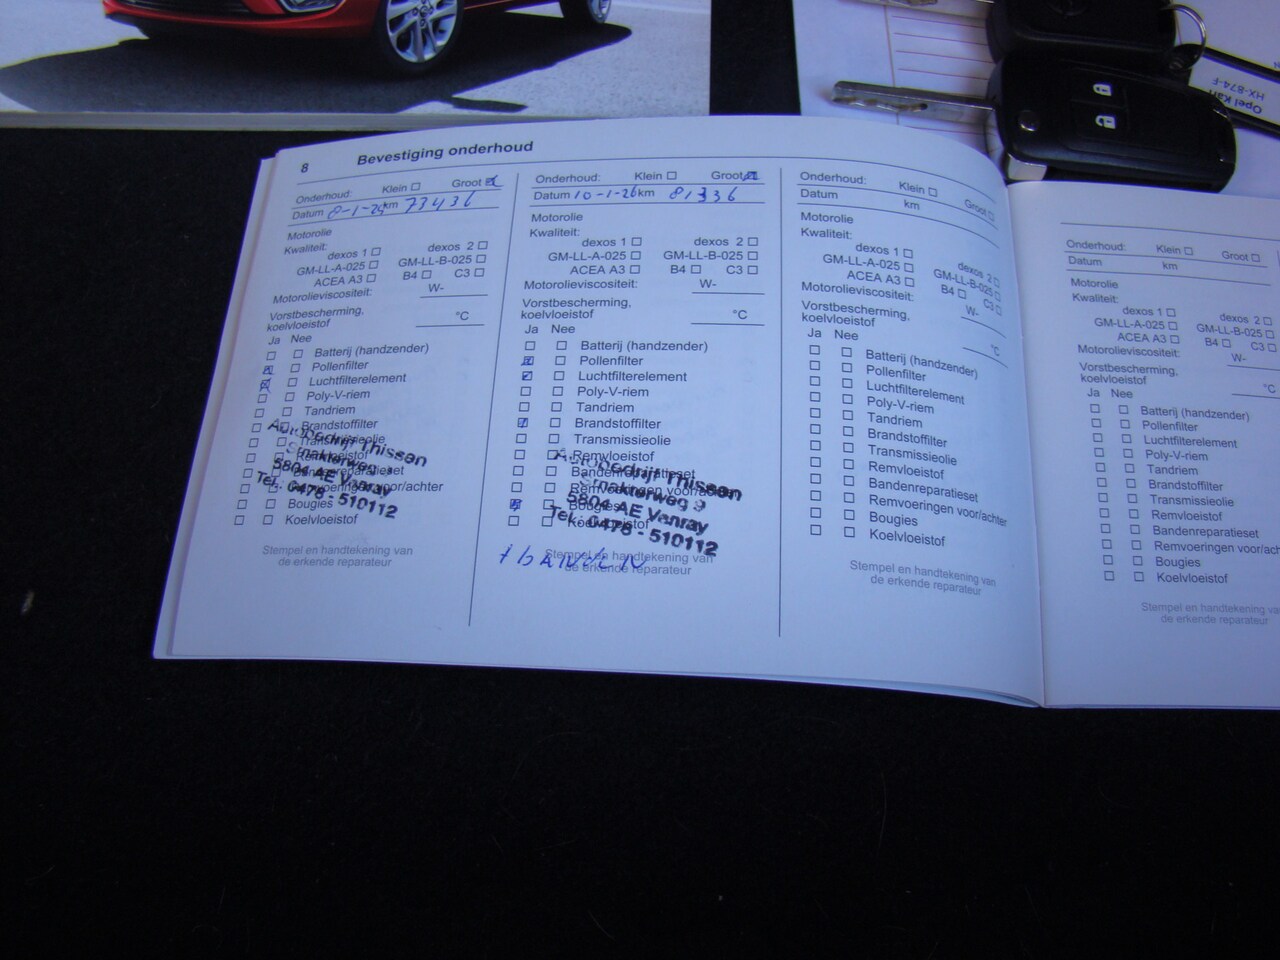 8 Bevestiging onderhoud
Onderhoud: Klein ☐ Groot ☒
Datum 8-1-24 km 73436
Motorolie
Kwaliteit:
dexos 1 ☐ dexos 2 ☐
GM-LL-A-025 ☐ GM-LL-B-025 ☐
ACEA A3 ☐ B4 ☐ C3 ☐
Motorolieviscositeit: W-
Vorstbescherming,
koelvloeistof °C
Ja Nee
☐ ☐ Batterij (handzender)
☒ ☐ Pollenfilter
☒ ☐ Luchtfilterelement
☐ ☐ Poly-V-riem
☐ ☐ Tandriem
☐ ☐ Brandstoffilter
☐ ☐ Transmissieolie
☐ ☐ Remvloeistof
☐ ☐ Bandenreparatieset
☐ ☐ Remvoeringen voor/achter
☐ ☐ Bougies
☐ ☐ Koelvloeistof
Autobedrijf Thissen
Smakterweg 9
5804 AE Venray
Tel.: 0478 - 510112
Stempel en handtekening van
de erkende reparateur
Onderhoud: Klein ☐ Groot ☒
Datum 10-1-26 km 81336
Motorolie
Kwaliteit:
dexos 1 ☐ dexos 2 ☐
GM-LL-A-025 ☐ GM-LL-B-025 ☐
ACEA A3 ☐ B4 ☐ C3 ☐
Motorolieviscositeit: W-
Vorstbescherming,
koelvloeistof °C
Ja Nee
☐ ☐ Batterij (handzender)
☒ ☐ Pollenfilter
☒ ☐ Luchtfilterelement
☐ ☐ Poly-V-riem
☐ ☐ Tandriem
☒ ☐ Brandstoffilter
☐ ☐ Transmissieolie
☐ ☐ Remvloeistof
☐ ☐ Bandenreparatieset
☐ ☐ Remvoeringen voor/achter
☒ ☐ Bougies
☐ ☐ Koelvloeistof
Autobedrijf Thissen
Smakterweg 9
5804 AE Venray
Tel.: 0478 - 510112
Stempel en handtekening van
de erkende reparateur
Onderhoud: Klein ☐ Groot ☐
Datum km
Motorolie
Kwaliteit:
dexos 1 ☐ dexos 2 ☐
GM-LL-A-025 ☐ GM-LL-B-025 ☐
ACEA A3 ☐ B4 ☐ C3 ☐
Motorolieviscositeit: W-
Vorstbescherming,
koelvloeistof °C
Ja Nee
☐ ☐ Batterij (handzender)
☐ ☐ Pollenfilter
☐ ☐ Luchtfilterelement
☐ ☐ Poly-V-riem
☐ ☐ Tandriem
☐ ☐ Brandstoffilter
☐ ☐ Transmissieolie
☐ ☐ Remvloeistof
☐ ☐ Bandenreparatieset
☐ ☐ Remvoeringen voor/achter
☐ ☐ Bougies
☐ ☐ Koelvloeistof
Stempel en handtekening van
de erkende reparateur
Onderhoud: Klein ☐ Groot ☐
Datum km
Motorolie
Kwaliteit:
dexos 1 ☐ dexos 2 ☐
GM-LL-A-025 ☐ GM-LL-B-025 ☐
ACEA A3 ☐ B4 ☐ C3 ☐
Motorolieviscositeit: W-
Vorstbescherming,
koelvloeistof °C
Ja Nee
☐ ☐ Batterij (handzender)
☐ ☐ Pollenfilter
☐ ☐ Luchtfilterelement
☐ ☐ Poly-V-riem
☐ ☐ Tandriem
☐ ☐ Brandstoffilter
☐ ☐ Transmissieolie
☐ ☐ Remvloeistof
☐ ☐ Bandenreparatieset
☐ ☐ Remvoeringen voor/ach
☐ ☐ Bougies
☐ ☐ Koelvloeistof
Stempel en handtekening va
de erkende reparateur
Opel Karl
HX-874-F